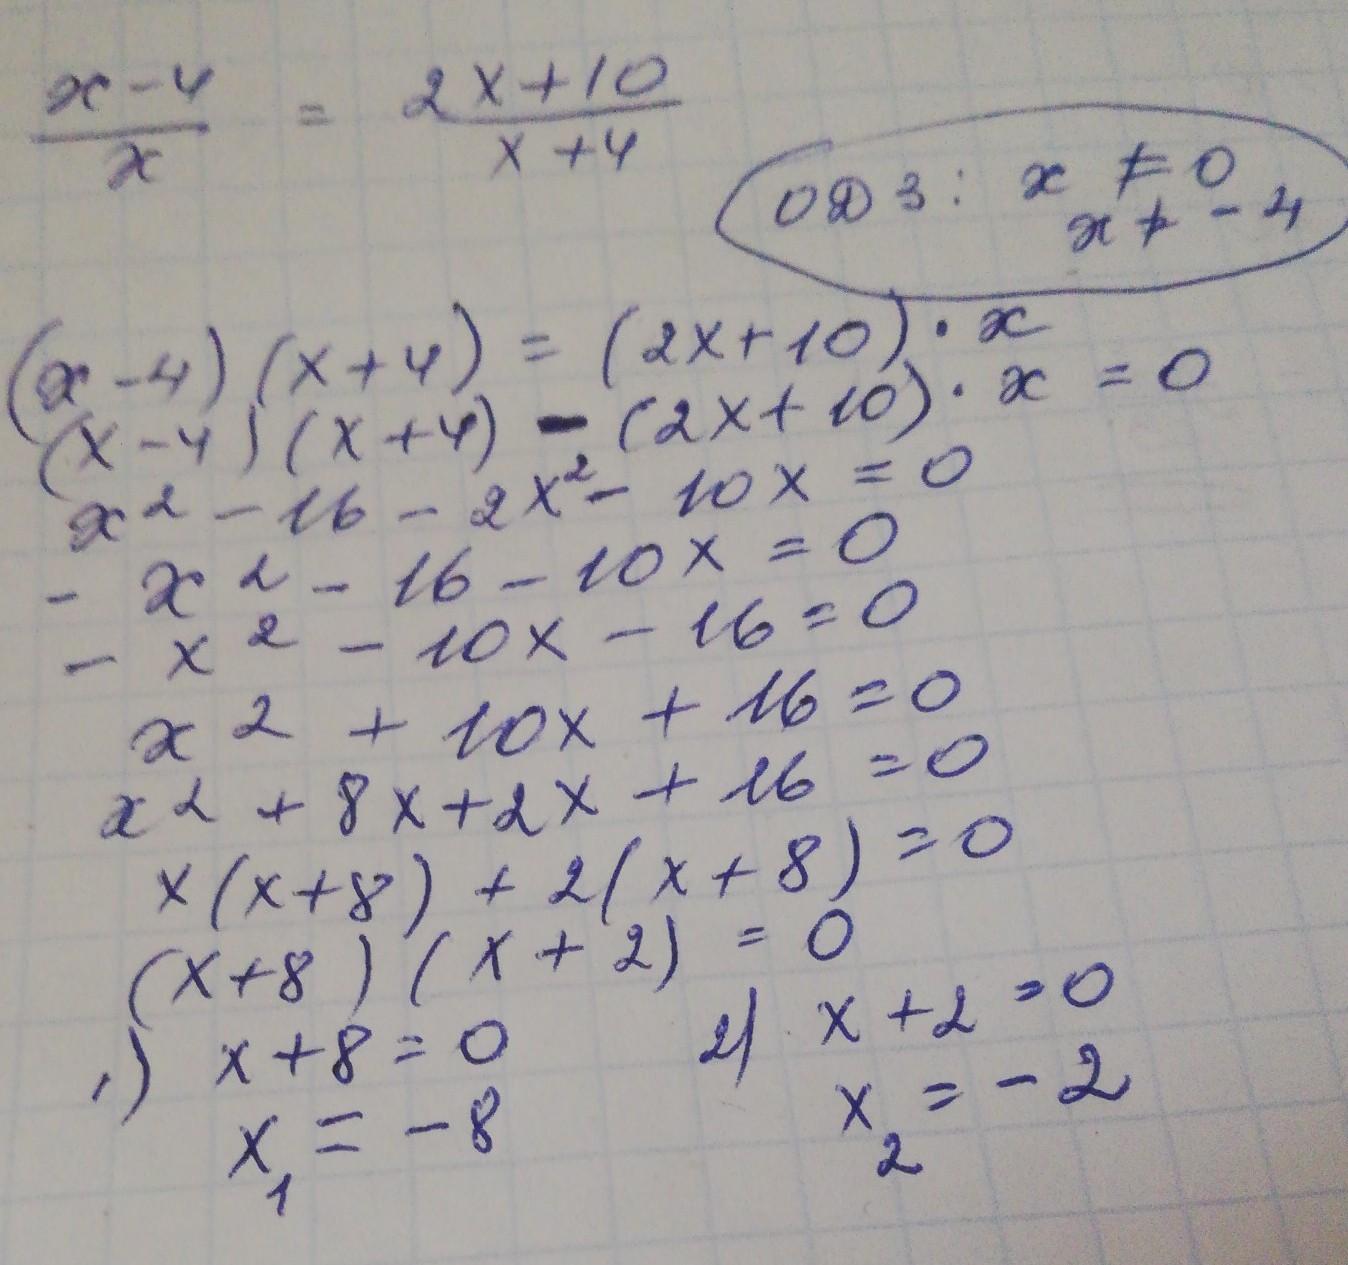 x-4/x = 2x+10/x+4
ОДЗ: x ≠ 0
x ≠ -4
(x-4)(x+4) = (2x+10)·x
(x-4)(x+4) - (2x+10)·x = 0
x² - 16 - 2x² - 10x = 0
- x² - 16 - 10x = 0
- x² - 10x - 16 = 0
x² + 10x + 16 = 0
x² + 8x + 2x + 16 = 0
x(x+8) + 2(x+8) = 0
(x+8)(x+2) = 0
1) x+8 = 0 2) x+2 = 0
x₁ = -8 x₂ = -2